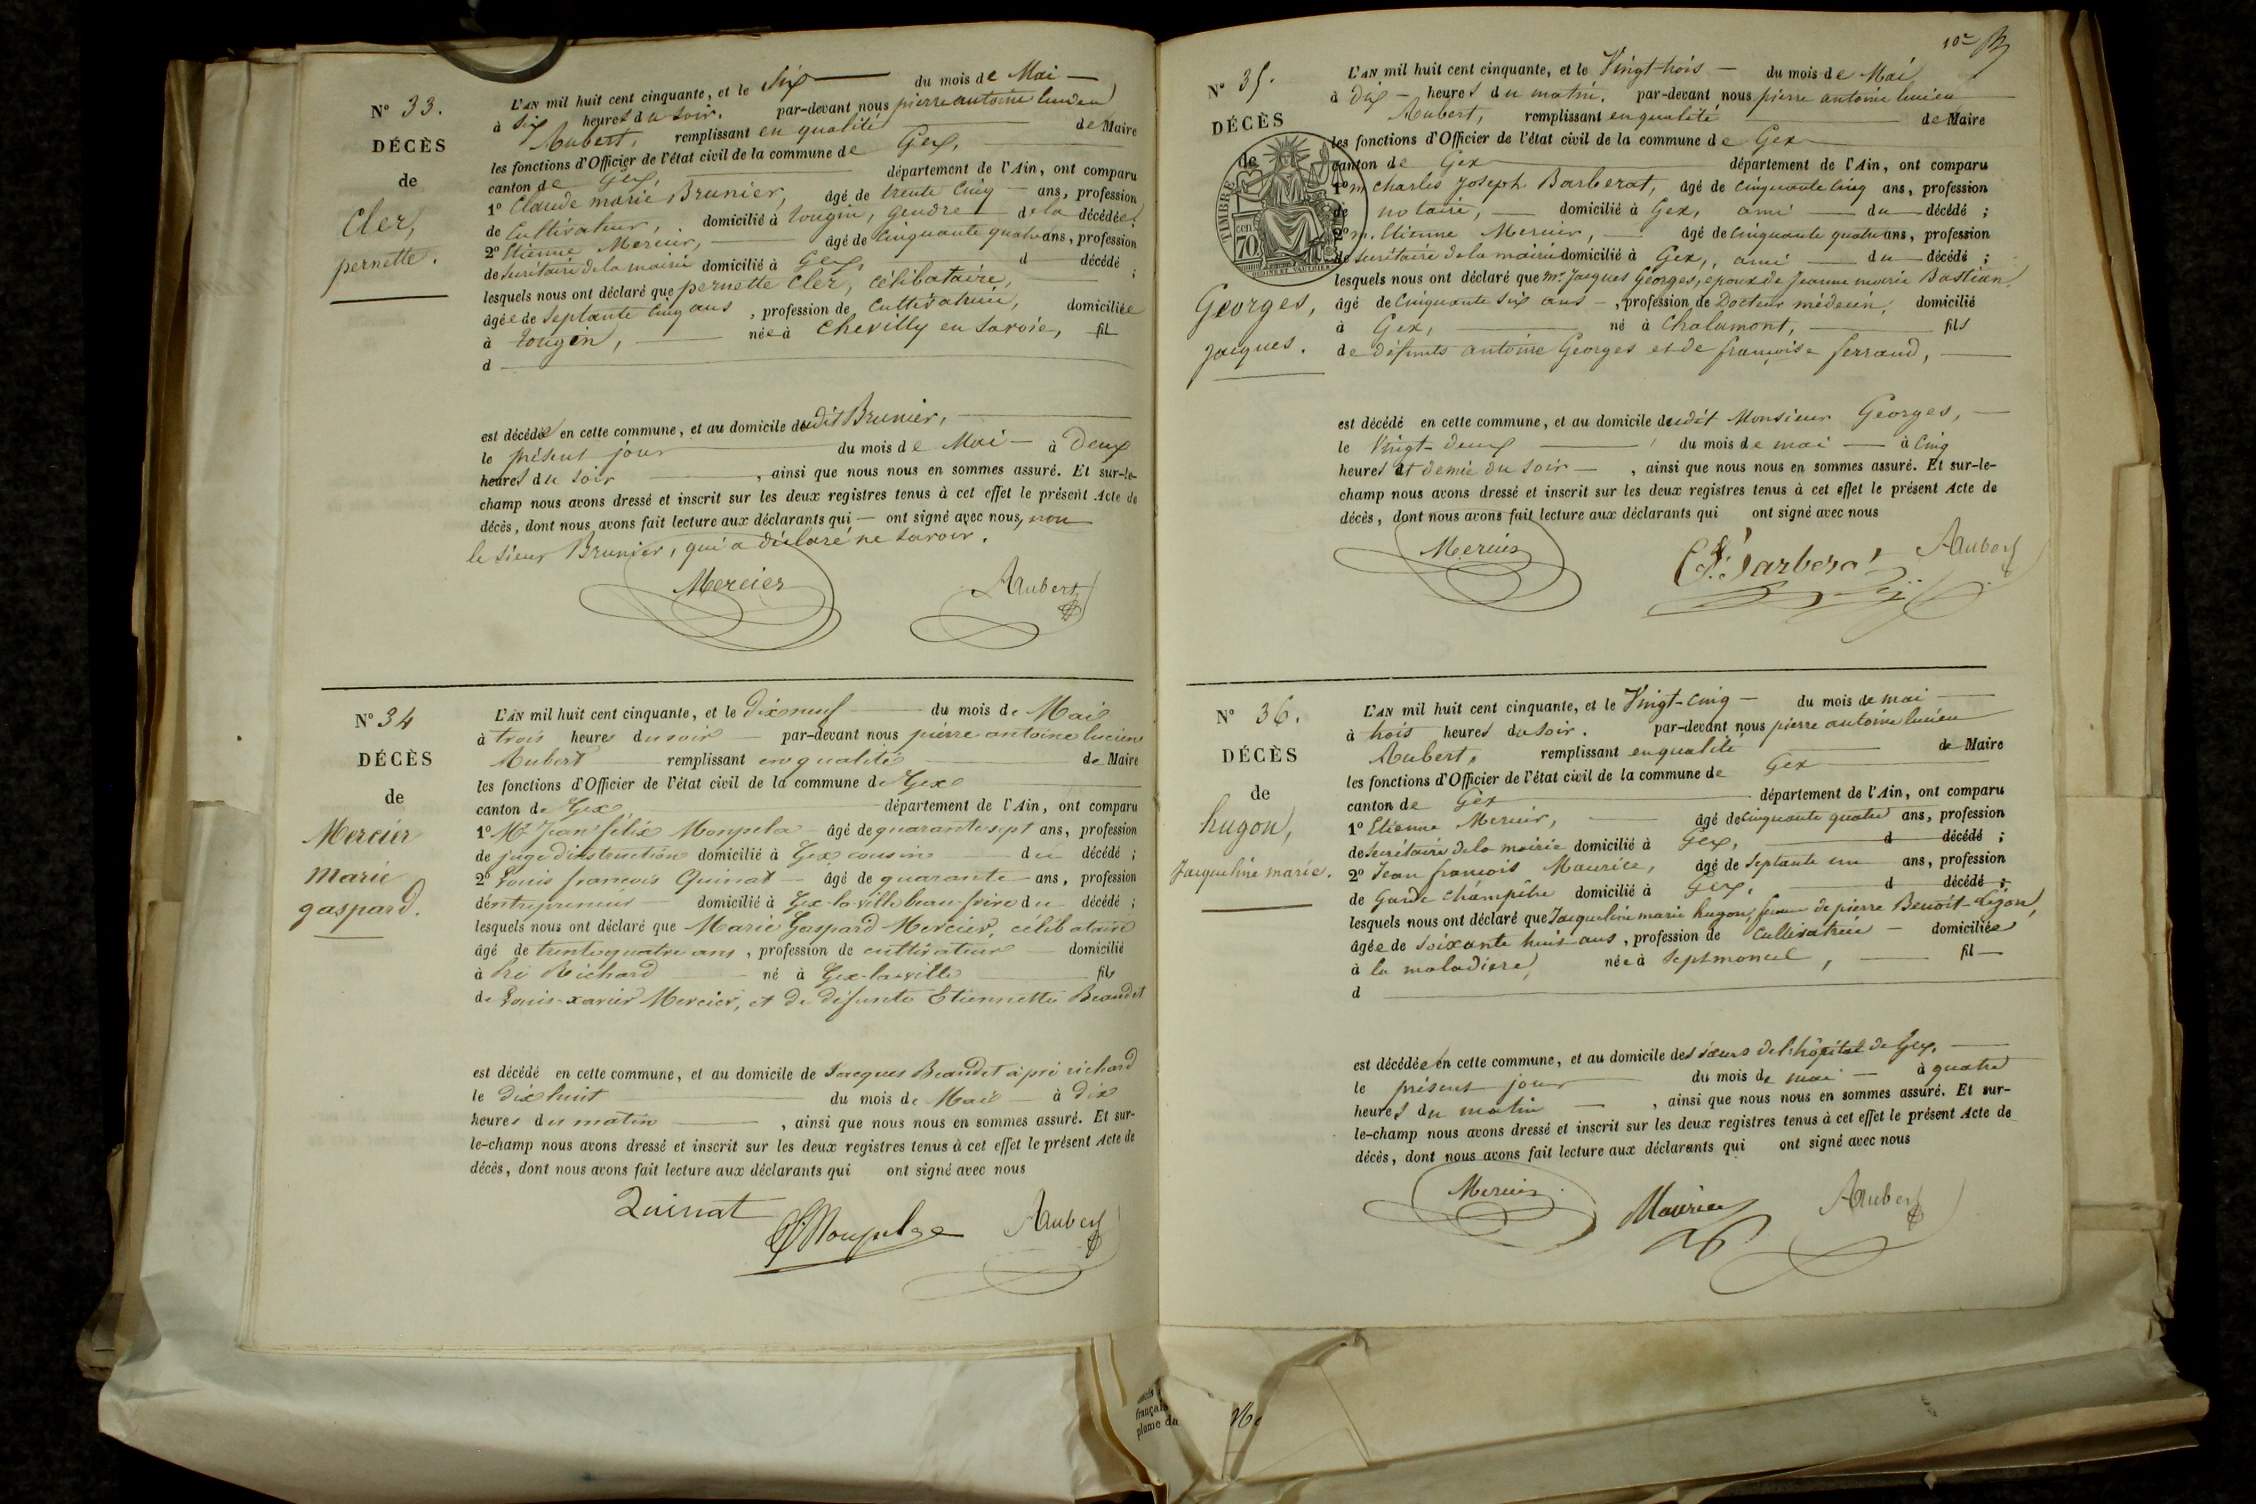 N° 33.
DÉCÈS
de
Cler,
pernette.
L'AN mil huit cent cinquante, et le Six du mois de Mai
à six heures du soir. par-devant nous pierre antoine lucien
Aubert, remplissant en qualité de Maire
les fonctions d'Officier de l'état civil de la commune de Gex,
canton de Gex, département de l'Ain, ont comparu
1° Claude marie Brunier, âgé de trente cinq ans, profession
de Cultivateur, domicilié à tougin, gendre de la décédée;
2° Etienne Mercier, âgé de cinquante quatre ans, profession
de secrétaire de la mairie domicilié à Gex, d décédé ;
lesquels nous ont déclaré que pernette Cler, célibataire,
âgée de septante cinq ans, profession de Cultivatrice, domiciliée
à tougin, née à Chevilly en Savoie, fil
d
est décédée en cette commune, et au domicile dudit Brunier,
le présent jour du mois de Mai à Deux
heures du soir, ainsi que nous nous en sommes assuré. Et sur-le-
champ nous avons dressé et inscrit sur les deux registres tenus à cet effet le présent Acte de
décès, dont nous avons fait lecture aux déclarants qui ont signé avec nous, non
le sieur Brunier, qui a déclaré ne savoir.
Mercier Aubert
N° 34
DÉCÈS
de
Mercier
Marie
gaspard.
L'AN mil huit cent cinquante, et le dix neuf du mois de Mai
à trois heures du soir par-devant nous pierre antoine lucien
Aubert remplissant en qualité de Maire
les fonctions d'Officier de l'état civil de la commune de Gex
canton de Gex département de l'Ain, ont comparu
1° Mr Jean félix Monpela âgé de quarante sept ans, profession
de juge d'instruction domicilié à Gex cousin du décédé ;
2° Louis francois Quinat âgé de quarante ans, profession
d'entrepreneur domicilié à Gex-la-ville beau-frère du décédé ;
lesquels nous ont déclaré que Marie Gaspard Mercier, célibataire
âgé de trente quatre ans, profession de cultivateur domicilié
à Pré Richard né à Gex-la-ville fils
de Louis-xavier Mercier, et de défunte Etiennette Beaudet
est décédé en cette commune, et au domicile de Jacques Beaudet à pré richard
le dix huit du mois de Mai à dix
heures du matin, ainsi que nous nous en sommes assuré. Et sur-
le-champ nous avons dressé et inscrit sur les deux registres tenus à cet effet le présent Acte de
décès, dont nous avons fait lecture aux déclarants qui ont signé avec nous
Quinat Aubert
10e
N° 35.
DÉCÈS
de
TIMBRE
cen 70
Georges,
Jacques.
L'AN mil huit cent cinquante, et le Vingt-trois du mois de Mai
à dix heures du matin. par-devant nous pierre antoine lucien
Aubert, remplissant en qualité de Maire
les fonctions d'Officier de l'état civil de la commune de Gex
canton de Gex département de l'Ain, ont comparu
1° m. Charles Joseph Barberat, âgé de cinquante cinq ans, profession
de notaire, domicilié à Gex, ami du décédé ;
2° m. Etienne Mercier, âgé de cinquante quatre ans, profession
de secrétaire de la mairie domicilié à Gex, ami du décédé ;
lesquels nous ont déclaré que mr. Jacques Georges, epoux de Jeanne marie Bastian,
âgé de Cinquante Six ans, profession de Docteur médecin, domicilié
à Gex, né à Chalamont, fils
de défunts antoine Georges et de françoise ferrand,
est décédé en cette commune, et au domicile dudit Monsieur Georges,
le Vingt-deux du mois de mai à Cinq
heures et demie du soir, ainsi que nous nous en sommes assuré. Et sur-le-
champ nous avons dressé et inscrit sur les deux registres tenus à cet effet le présent Acte de
décès, dont nous avons fait lecture aux déclarants qui ont signé avec nous
Mercier Barberat Aubert
N° 36.
DÉCÈS
de
hugon,
Jacqueline marie.
L'AN mil huit cent cinquante, et le Vingt-cinq du mois de mai
à trois heures du soir. par-devant nous pierre antoine lucien
Aubert, remplissant en qualité de Maire
les fonctions d'Officier de l'état civil de la commune de Gex
canton de Gex département de l'Ain, ont comparu
1° Etienne Mercier, âgé de cinquante quatre ans, profession
de secrétaire de la mairie domicilié à Gex, d décédé ;
2° Jean francois Maurice, âgé de septante un ans, profession
de Garde Champêtre domicilié à Gex, d décédé ;
lesquels nous ont déclaré que Jacqueline marie hugon, femme de pierre Benoit Ligon,
âgée de soixante huit ans, profession de Cultivatrice domiciliée
à la maladiere, née à Septmoncel, fil
d
est décédée en cette commune, et au domicile des sœurs de l'hôpital de Gex,
le présent jour du mois de mai à quatre
heures du matin, ainsi que nous nous en sommes assuré. Et sur-
le-champ nous avons dressé et inscrit sur les deux registres tenus à cet effet le présent Acte de
décès, dont nous avons fait lecture aux déclarants qui ont signé avec nous
Mercier Maurice Aubert
français
plume de